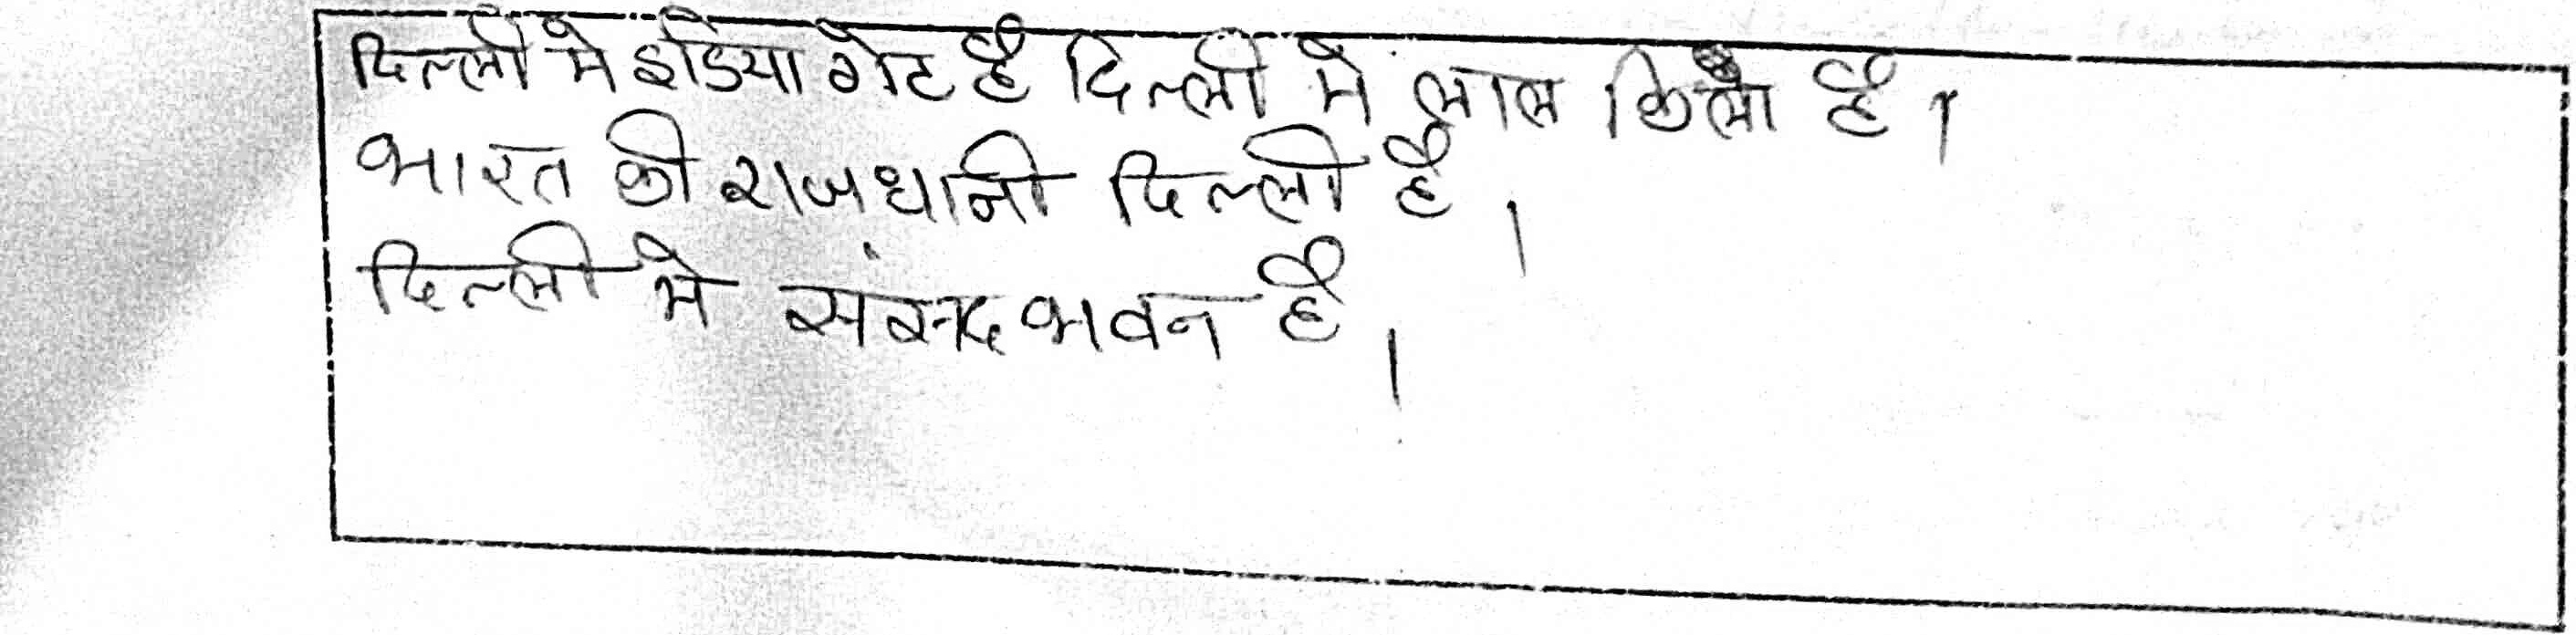 दिल्ली मे इंडिया गेट है दिल्ली मे लाल किला है।
भारत की राजधानी दिल्ली है।
दिल्ली मे संसद भवन है।